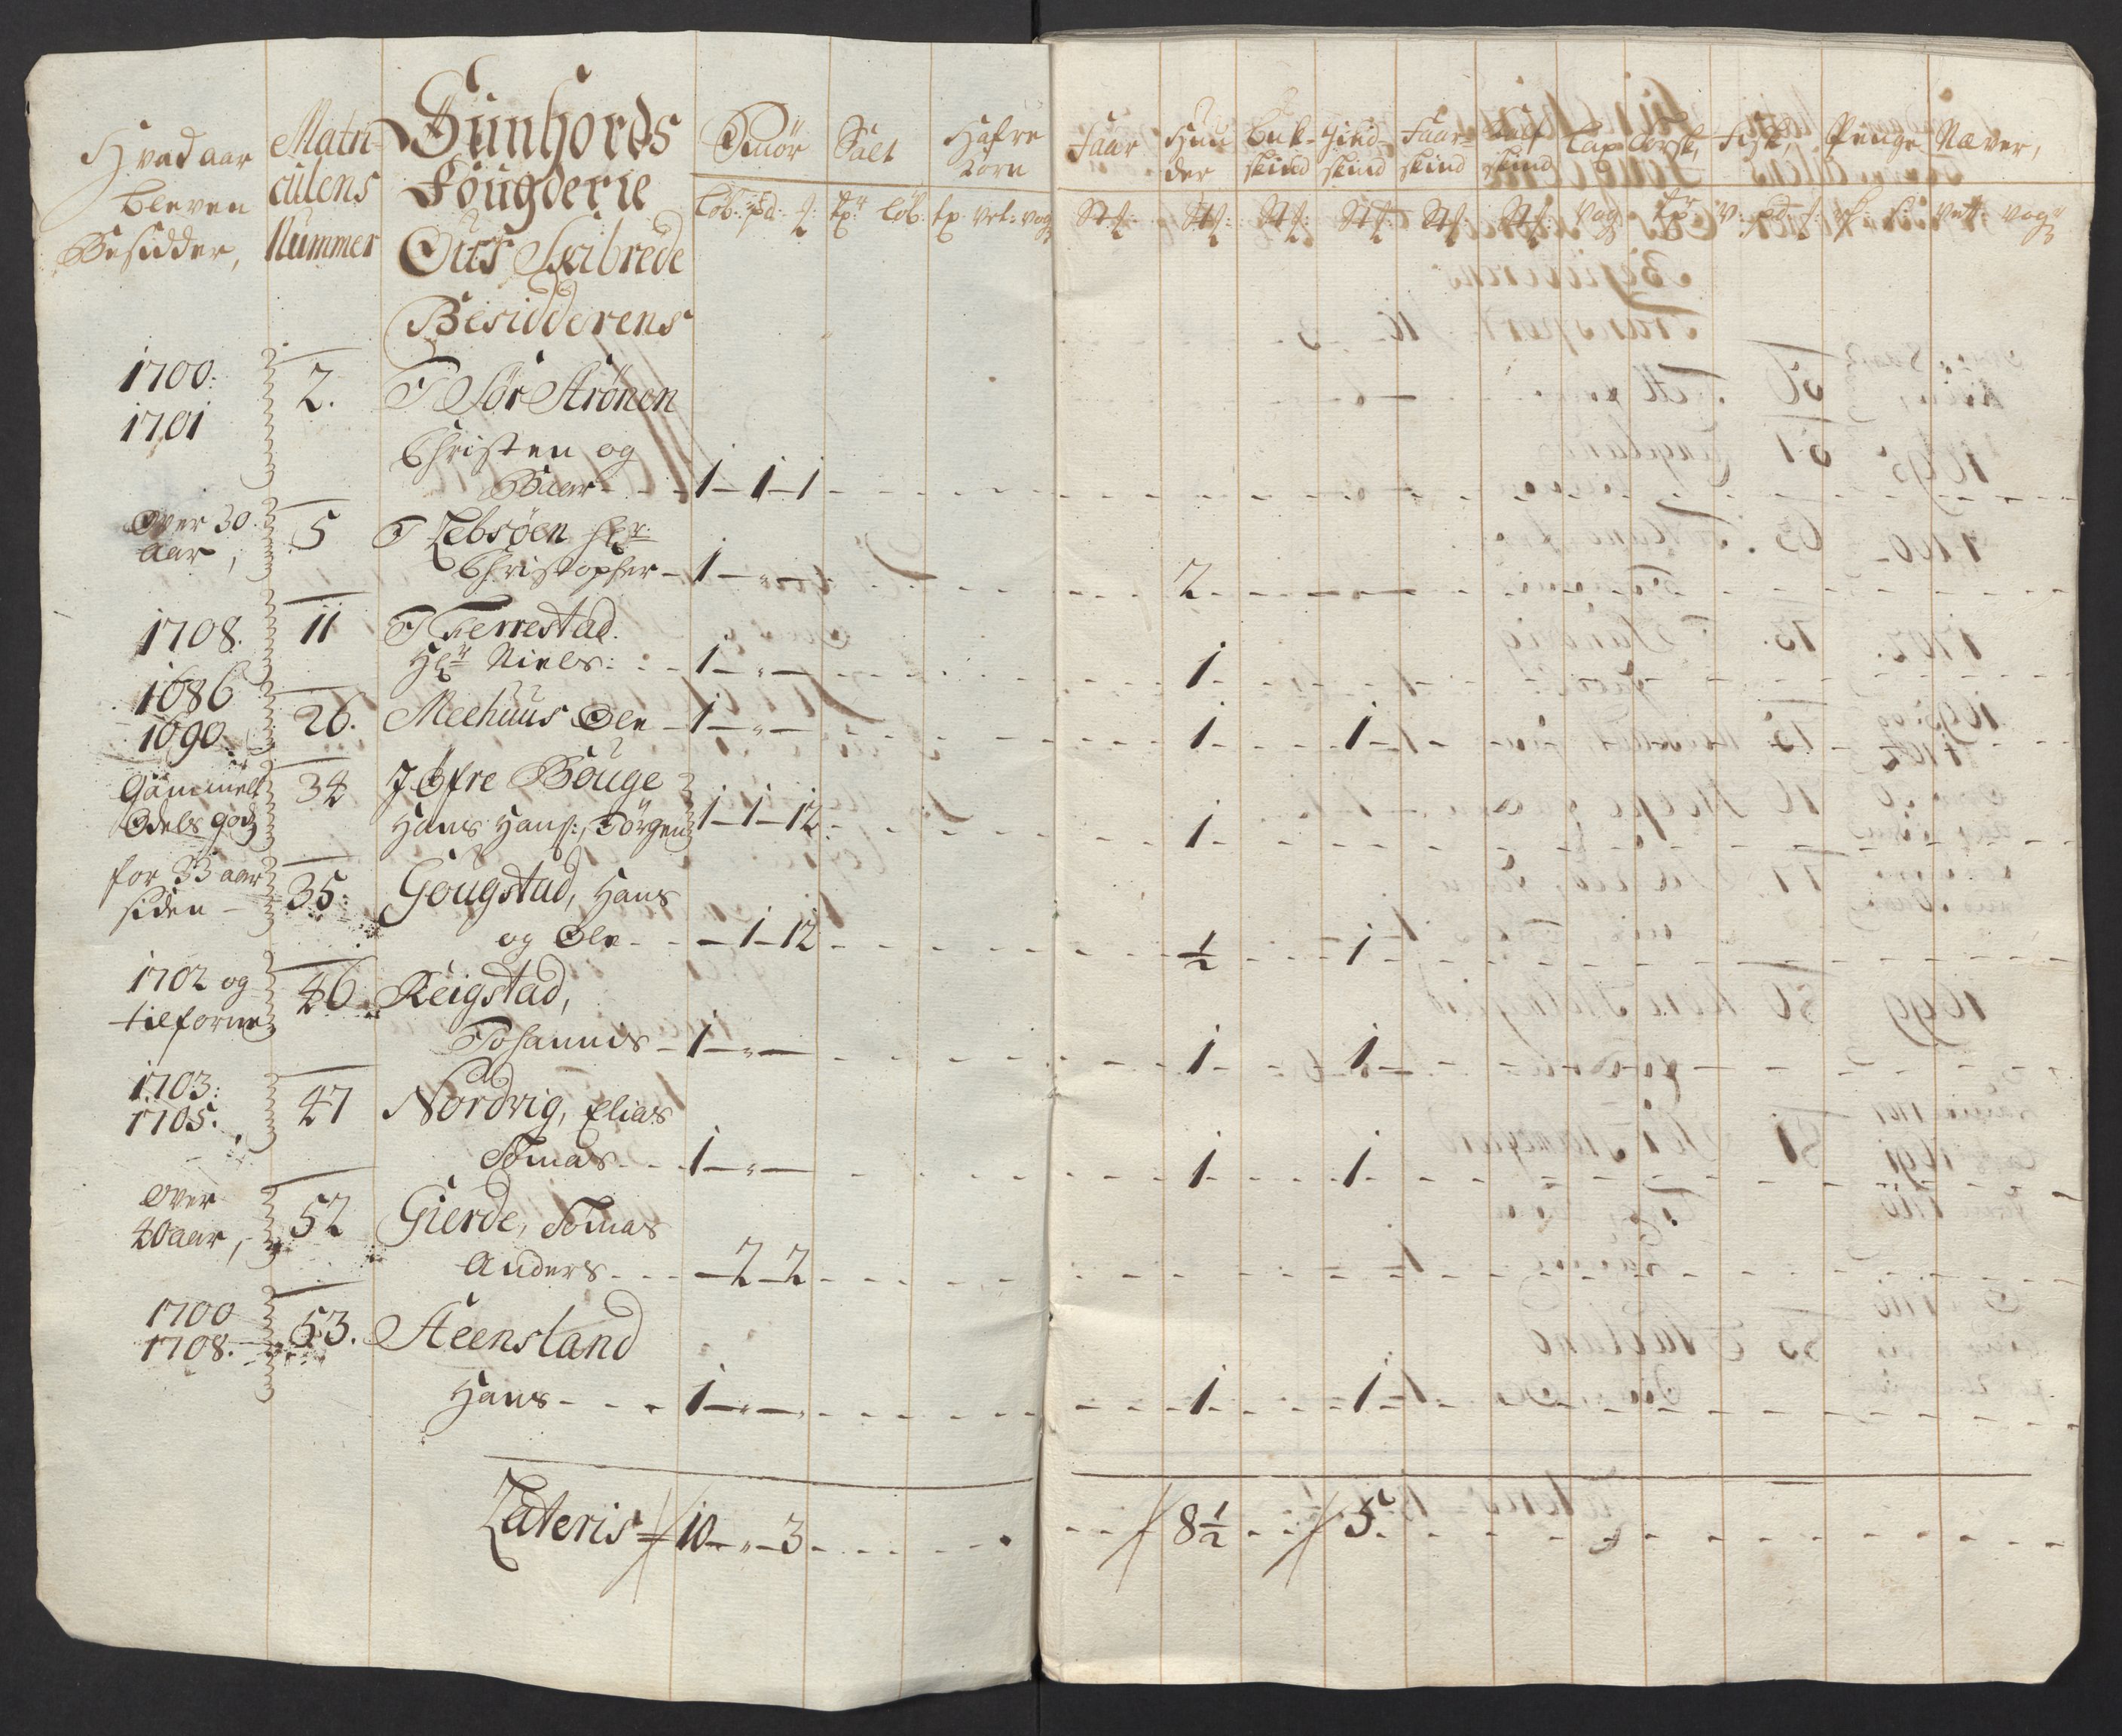 Hvad aar
bleven
Besidder,
Matri-
culens
Nummer
Sunhords
Fougderie
Ous Skibrede
Besidderens
Smör
Salt
Hafre
Korn
Faar
Huu
der
buk-
skind
Giedskind
Faarskind
Kalfskind
Lax
Torsk,
Fisk,
Penge
Næver,
1700:
1701
2.
Sör Strönen
Christen og
Baar - - - 1-1-1
Over 30
Aar,
5
Lebsöen
Christopher - 1-"-
2
1708.
11
Ferrestad.
Niels: - 1-"-
1
1686
1690:
26.
Meehuus Ole - 1-"-
1 1
Gammelt
Odels godz
34
Öfre Bouge
Hans Hans: Jörgen 1-1-12
1
for 33 aar
siden -
35:
Gougstad, Hans
og Ole - - -1-12
1/2 1
1702 og
tilforne
46
Reigstad,
Johannes - 1-"-
1 1
1703:
1705.
47
Nordvig, Elias
Tomas - - 1-"-
1 1
Over
40 aar,
52
Gierde, Tomas
Anders - - - -2-2
1700
1708.
53.
Steensland
Hans - - - 1-"-
1 1
Lateris 10-"-3
8 1/2 5